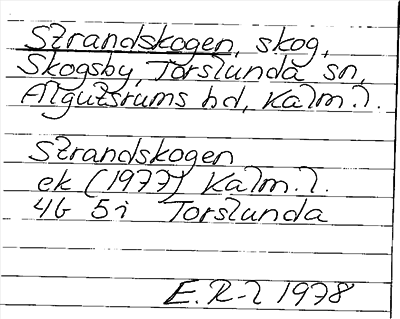 Strandskogen, skog,
Skogsby, Torslunda sn,
Algutsrums hd, Kalm.l.
Strandskogen
ek (1977) Kalm.l.
4G 5i Torslunda
E.R-l 1978